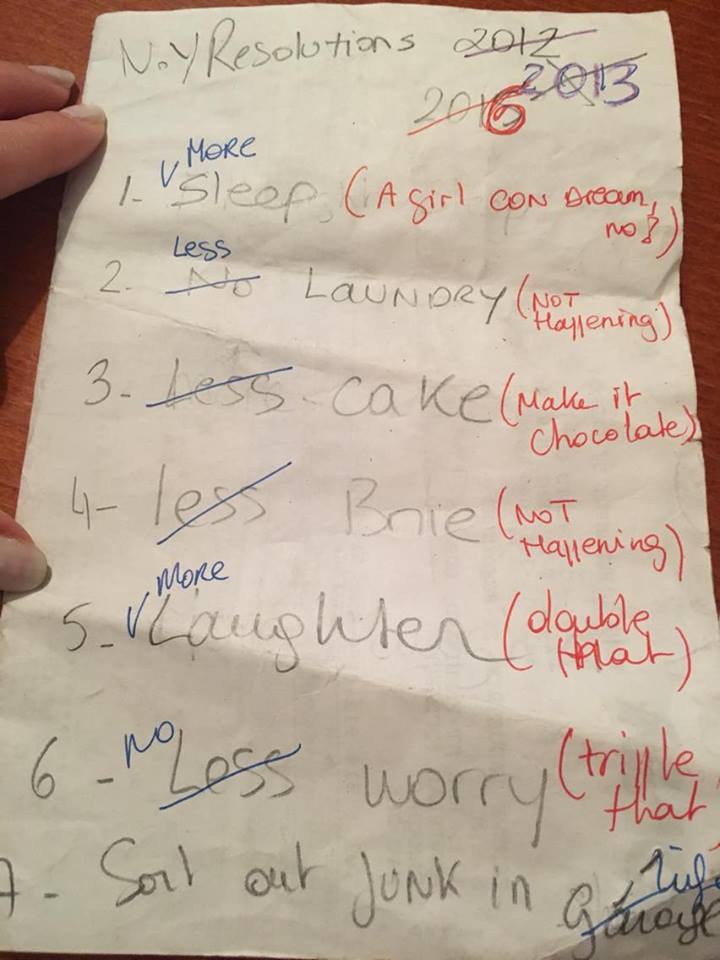 N.Y Resolutions 2012
2013
2016
MORE
1- Sleep (A girl CON Dream,
no?)
Less
2. No LAUNDRY (NOT
Happening)
3- Less cake (Make it
chocolate)
4- less Brie (NOT
Happening)
More
5- Laughter (double
that)
NO
6 - Less worry (triple
that
7- Sort out JUNK in garage
life